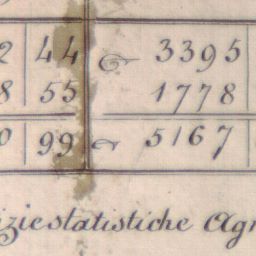 2 44 3395
8 55 1778
0 99 5167
iziestatistiche Agr